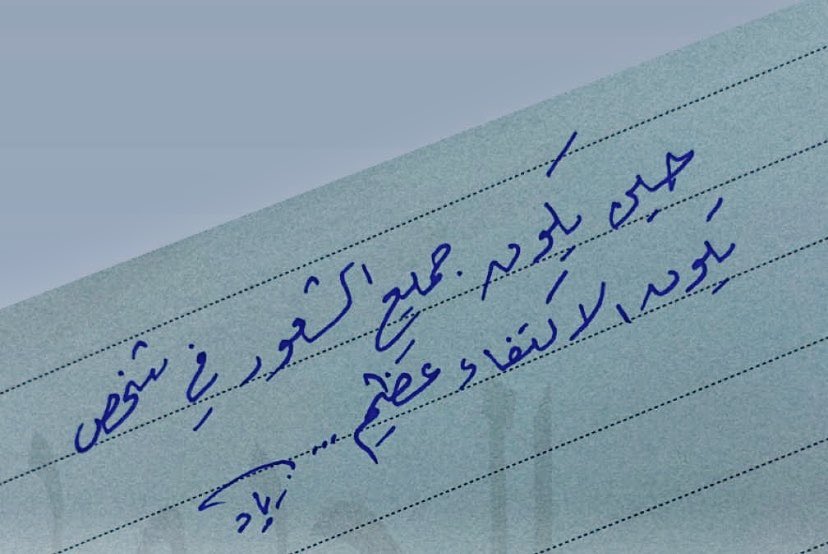 حين يكون جميع الشعور في شخص
يكون الاكتفاء عظيم...
زياد